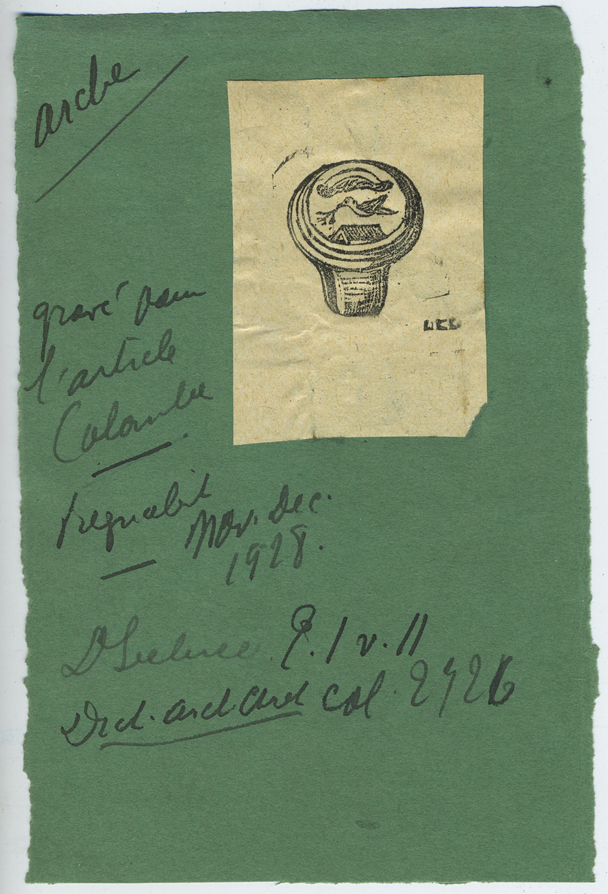 arche
gravé pour
l'article
Colombe
Regnabit
Nov. Dec.
1928.
D Leclercq P. I v. II
Dict. arch. chret col. 2726